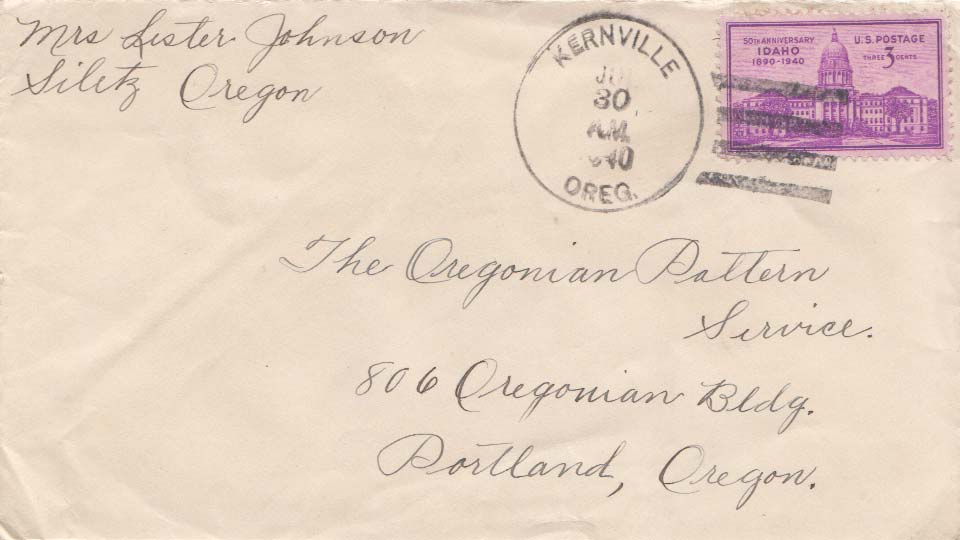 Mrs Lester Johnson
Siletz Oregon
KERNVILLE
30
A.M.
OREG.
50TH ANNIVERSARY
IDAHO
1890-1940
U.S. POSTAGE
THREE 3 CENTS
The Oregonian Pattern
Service.
806 Oregonian Bldg.
Portland, Oregon.